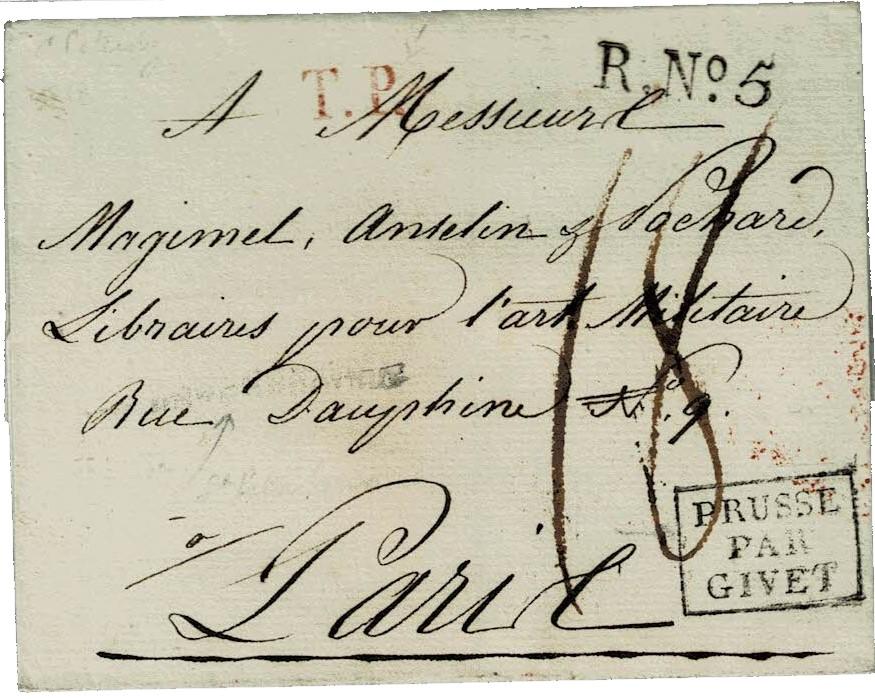 T.P.
R. No. 5
A Messieurs
Magimel, Anselin & Pochard,
Libraires pour l'art Militaire
Rue Dauphine No. 9.
18
à Paris
PRUSSE
PAR
GIVET